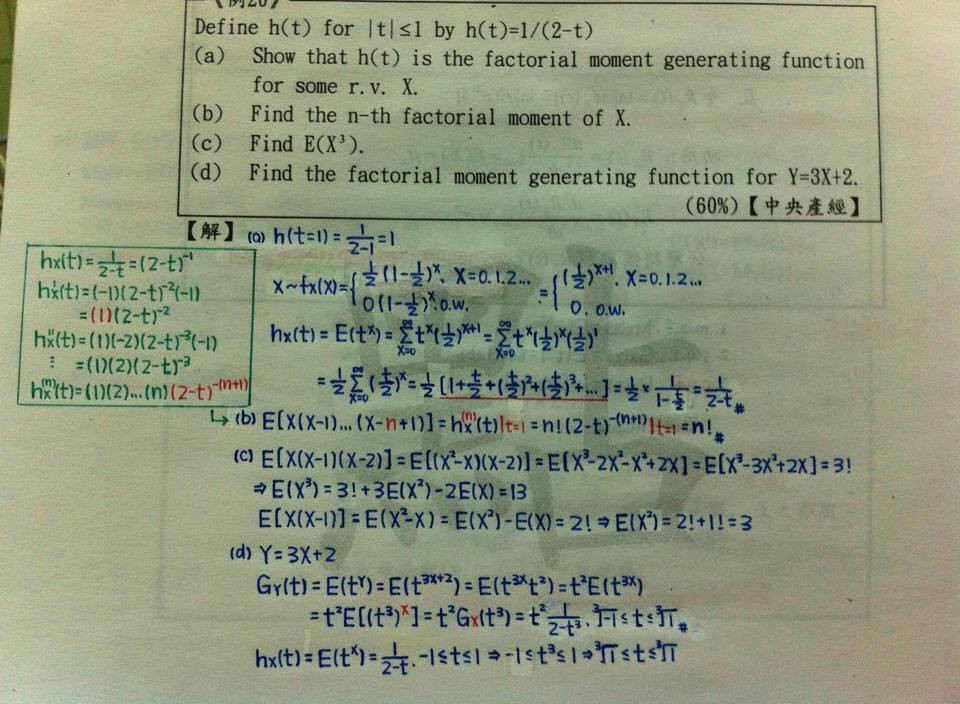 【例20】
Define h(t) for |t|≤1 by h(t)=1/(2-t)
(a) Show that h(t) is the factorial moment generating function
for some r.v. X.
(b) Find the n-th factorial moment of X.
(c) Find E(X³).
(d) Find the factorial moment generating function for Y=3X+2.
(60%)【中央產經】
【解】 (a) h(t=1) = 1/(2-1) = 1
X~fx(x) = { 1/2(1-1/2)^x, X=0.1.2... 0(1-1/2)^x, o.w. = { (1/2)^(x+1), X=0.1.2... 0. o.w.
hx(t) = E(t^x) = Σ_{X=0}^∞ t^x(1/2)^(x+1) = Σ_{X=0}^∞ t^x(1/2)^x(1/2)^1
= 1/2 Σ_{X=0}^∞ (t/2)^x = 1/2 [1+t/2+(t/2)²+(t/2)³+...] = 1/2 × 1/(1-t/2) = 1/(2-t) #
hx(t) = 1/(2-t) = (2-t)⁻¹
hx'(t) = (-1)(2-t)⁻²(-1)
= (1)(2-t)⁻²
hx''(t) = (1)(-2)(2-t)⁻³(-1)
⋮ = (1)(2)(2-t)⁻³
hx^(n)(t) = (1)(2)...(n)(2-t)^-(n+1)
↳ (b) E[X(X-1)...(X-n+1)] = hx^(n)(t)|t=1 = n!(2-t)^-(n+1)|t=1 = n! #
(c) E[X(X-1)(X-2)] = E[(X²-X)(X-2)] = E[X³-2X²-X²+2X] = E[X³-3X²+2X] = 3!
⇒ E(X³) = 3!+3E(X²)-2E(X) = 13
E[X(X-1)] = E(X²-X) = E(X²)-E(X) = 2! ⇒ E(X²) = 2!+1! = 3
(d) Y=3X+2
GY(t) = E(t^Y) = E(t^(3X+2)) = E(t^(3X)t²) = t²E(t^(3X))
= t²E[(t³)^X] = t²Gx(t³) = t² 1/(2-t³), ³√-1 ≤ t ≤ ³√1 #
hx(t) = E(t^x) = 1/(2-t), -1≤t≤1 ⇒ -1≤t³≤1 ⇒ ³√1 ≤ t ≤ ³√1